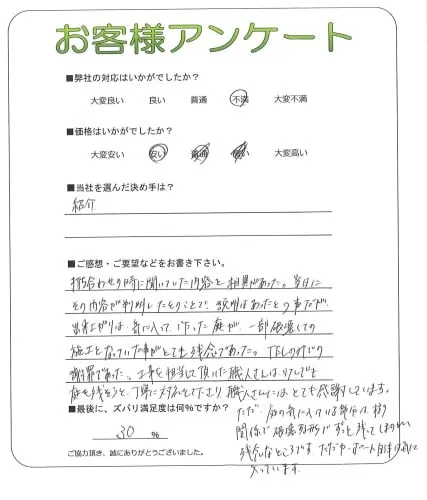 お客様アンケート
■弊社の対応はいかがでしたか？
大変良い 良い 普通 不満 大変不満
■価格はいかがでしたか？
大変安い 安い 普通 高い 大変高い
■当社を選んだ決め手は？
紹介
■ご感想・ご要望などをお書き下さい。
打ち合わせの時に聞いていた内容と相異があった。当日に
その内容が判明したとのことで、説明はあったとの事だが、
出来上がりは、気に入って作った庭が、一部破壊しての
施工となっていた事がとても残念であった。TELのみでの
謝罪であった。工事を担当して頂いた職人さんは
庭も残そうと、丁寧に 職人さんにはとても感謝しています。
ただ、庭の気に入っている部分は
関係で破壊 がずっと残ってしまう
残念なところです。ただカーポート自体は気に
入っています。
■最後に、ズバリ満足度は何%ですか？
30 %
ご協力頂き、誠にありがとうございました。